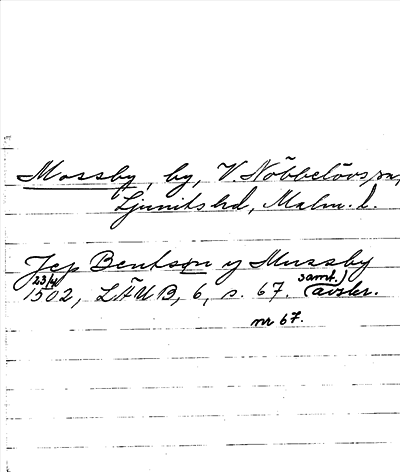 Mossby, by, V. Nöbbelövs sn,
Ljunits hd, Malm. l.
Jep Bentson y Mussby
23/4 1502, LÄUB, 6, s. 67. (samt. avskr.)
nr 67.